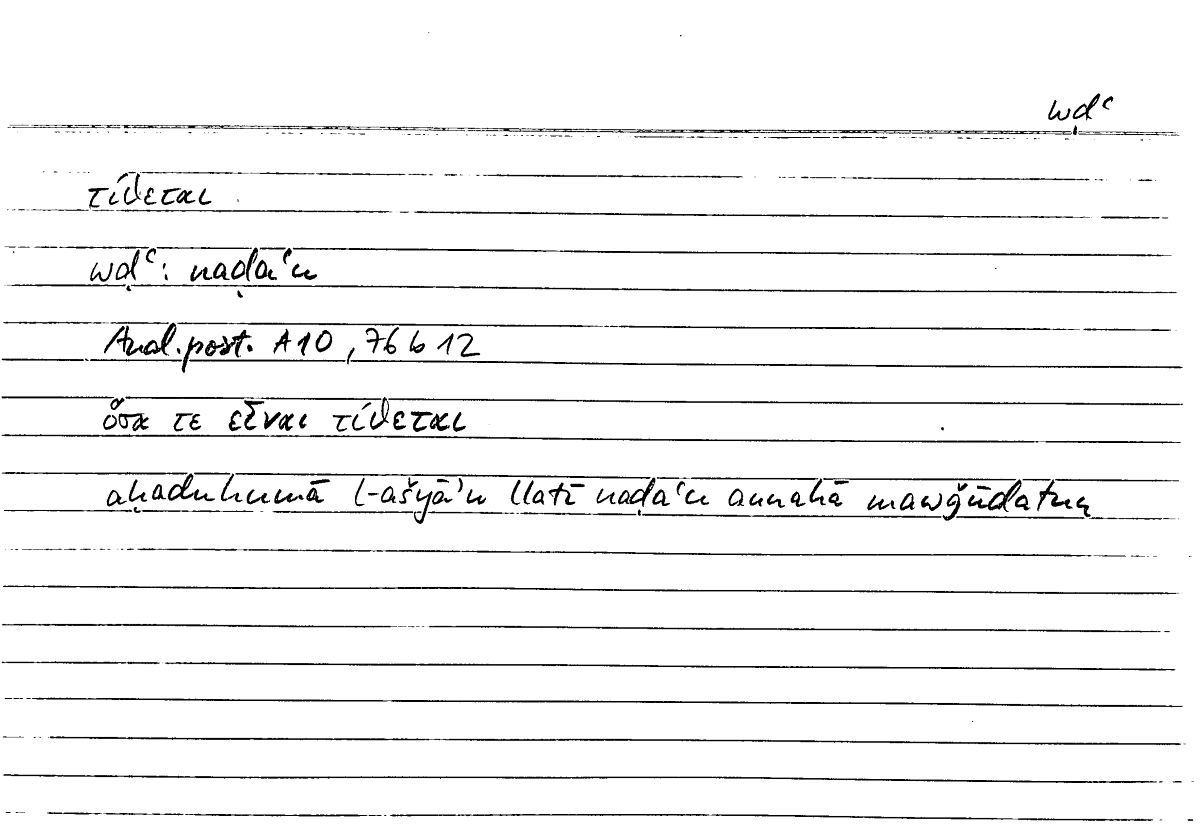 wḍʿ
τίθεται
wḍʿ: naḍaʿu
Anal.post. A10, 76 b 12
ὅσα τε εἶναι τίθεται
aḥaduhumā l-ašyāʾu llatī naḍaʿu annahā mawǧūdatun